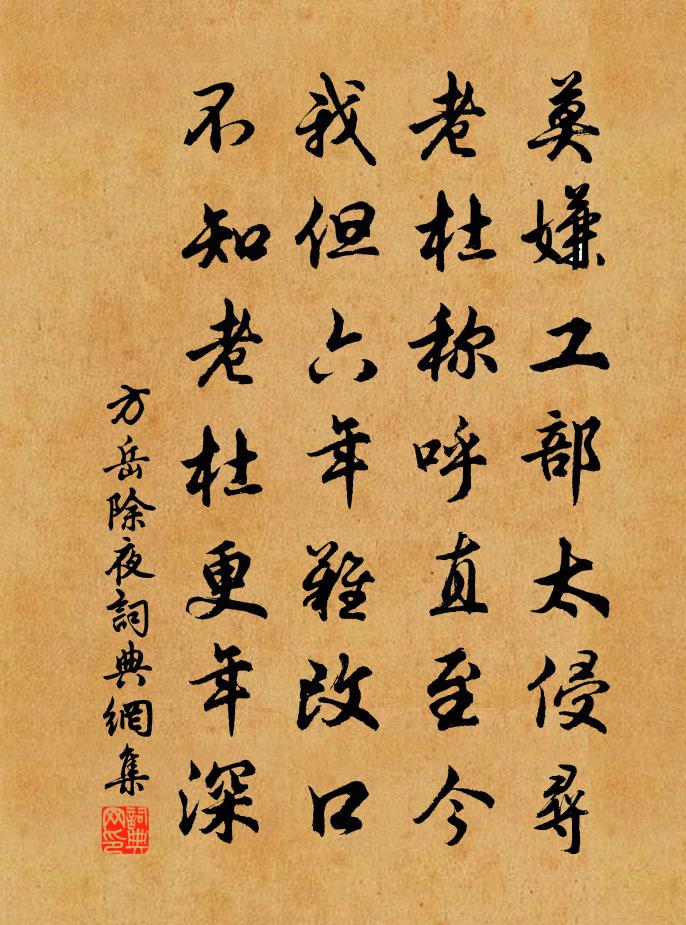 莫嫌工部太侵尋
老杜称呼直至今
我但六年難改口
不知老杜更年深
方岳除夜詞典網集
詞典网印